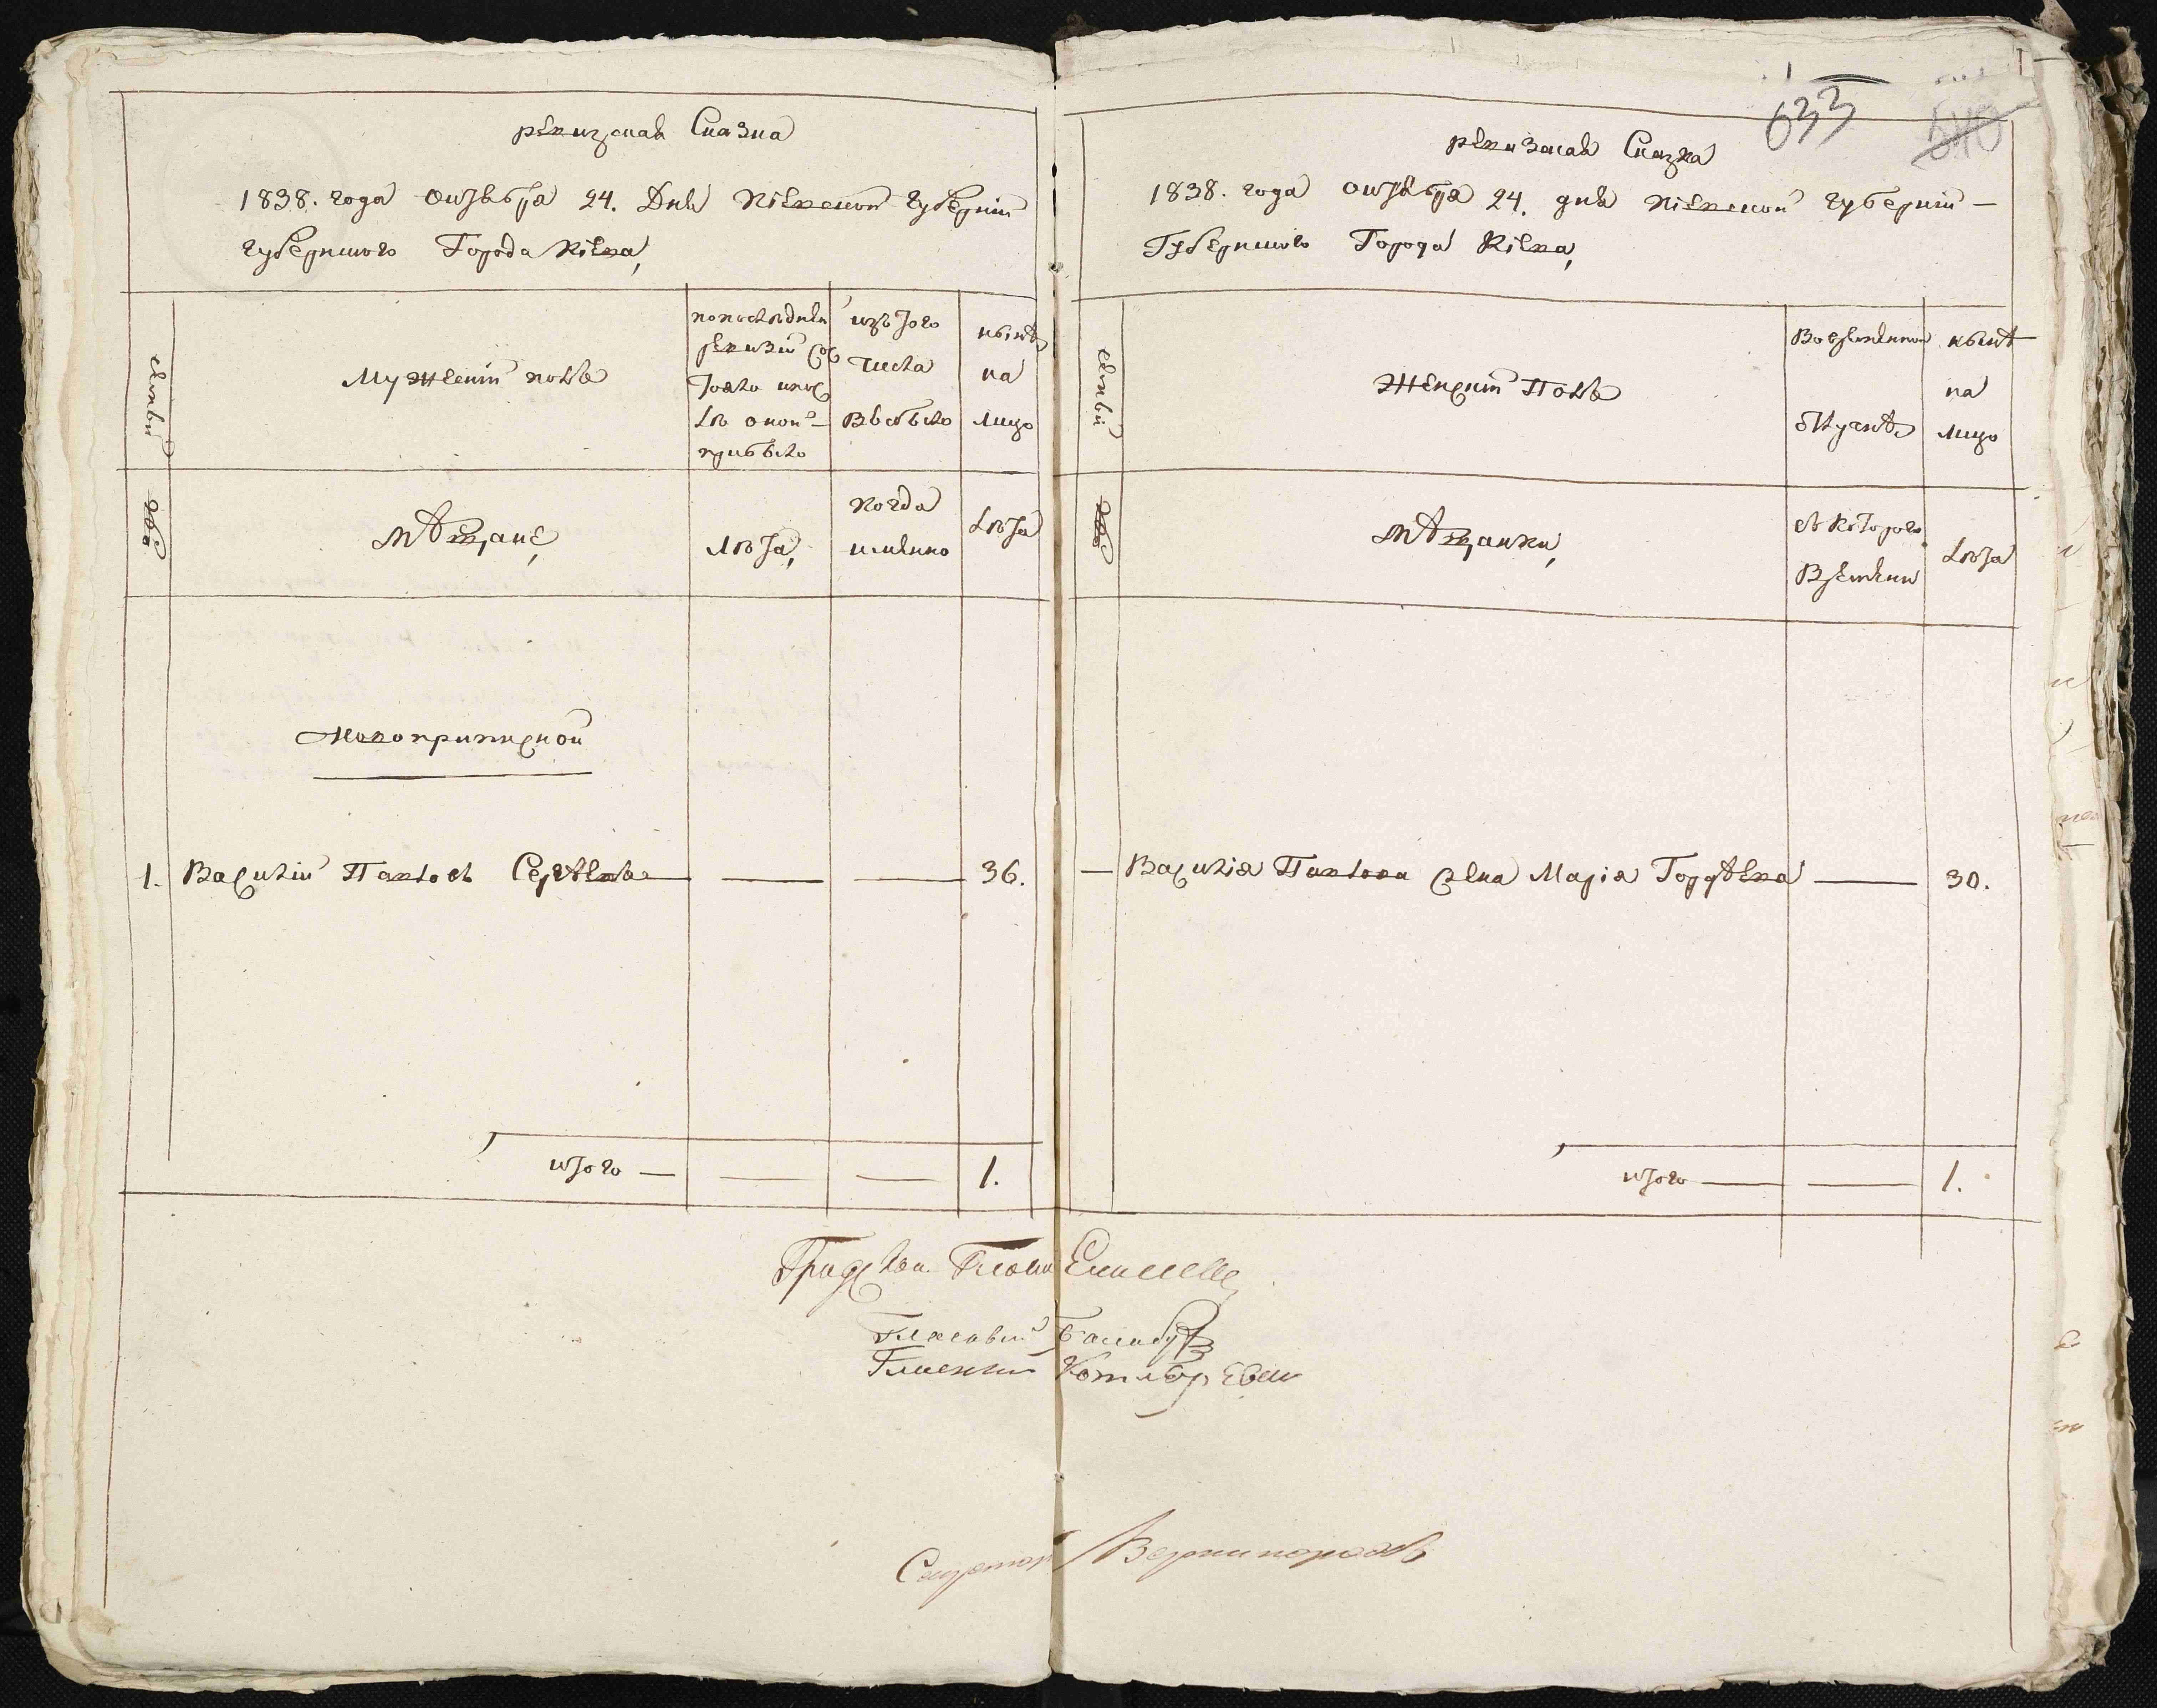 ревизская Сказка
1838. года октября 24. Дня Кіевской губерніи
губернского Города Кіева,
семьи
Мужескій полъ
по последней
ревизіи сос
тояло и пос
лѣ оной
прибыло
изъ того
числа
Выбыло
нынѣ
на
лицо
мѣщане,
лѣта,
когда
именно
лѣта
Новоприписной
1. Василій Павловъ Сергѣевъ — — — 36.
итого — — — 1.
633
540
ревизская Сказка
1838. года октября 24. дня Кіевской губерніи —
Губернского Города Кіева,
семьи
Женскій Полъ
Во временной
отлучкѣ
нынѣ
на
лицо
мѣщанки,
съ которого
Времени
лѣта
— Василія Павлова жена Марія Гордѣева — 30.
итого — — 1.
Градской Глава
Гласный
Гласный
Секретарь